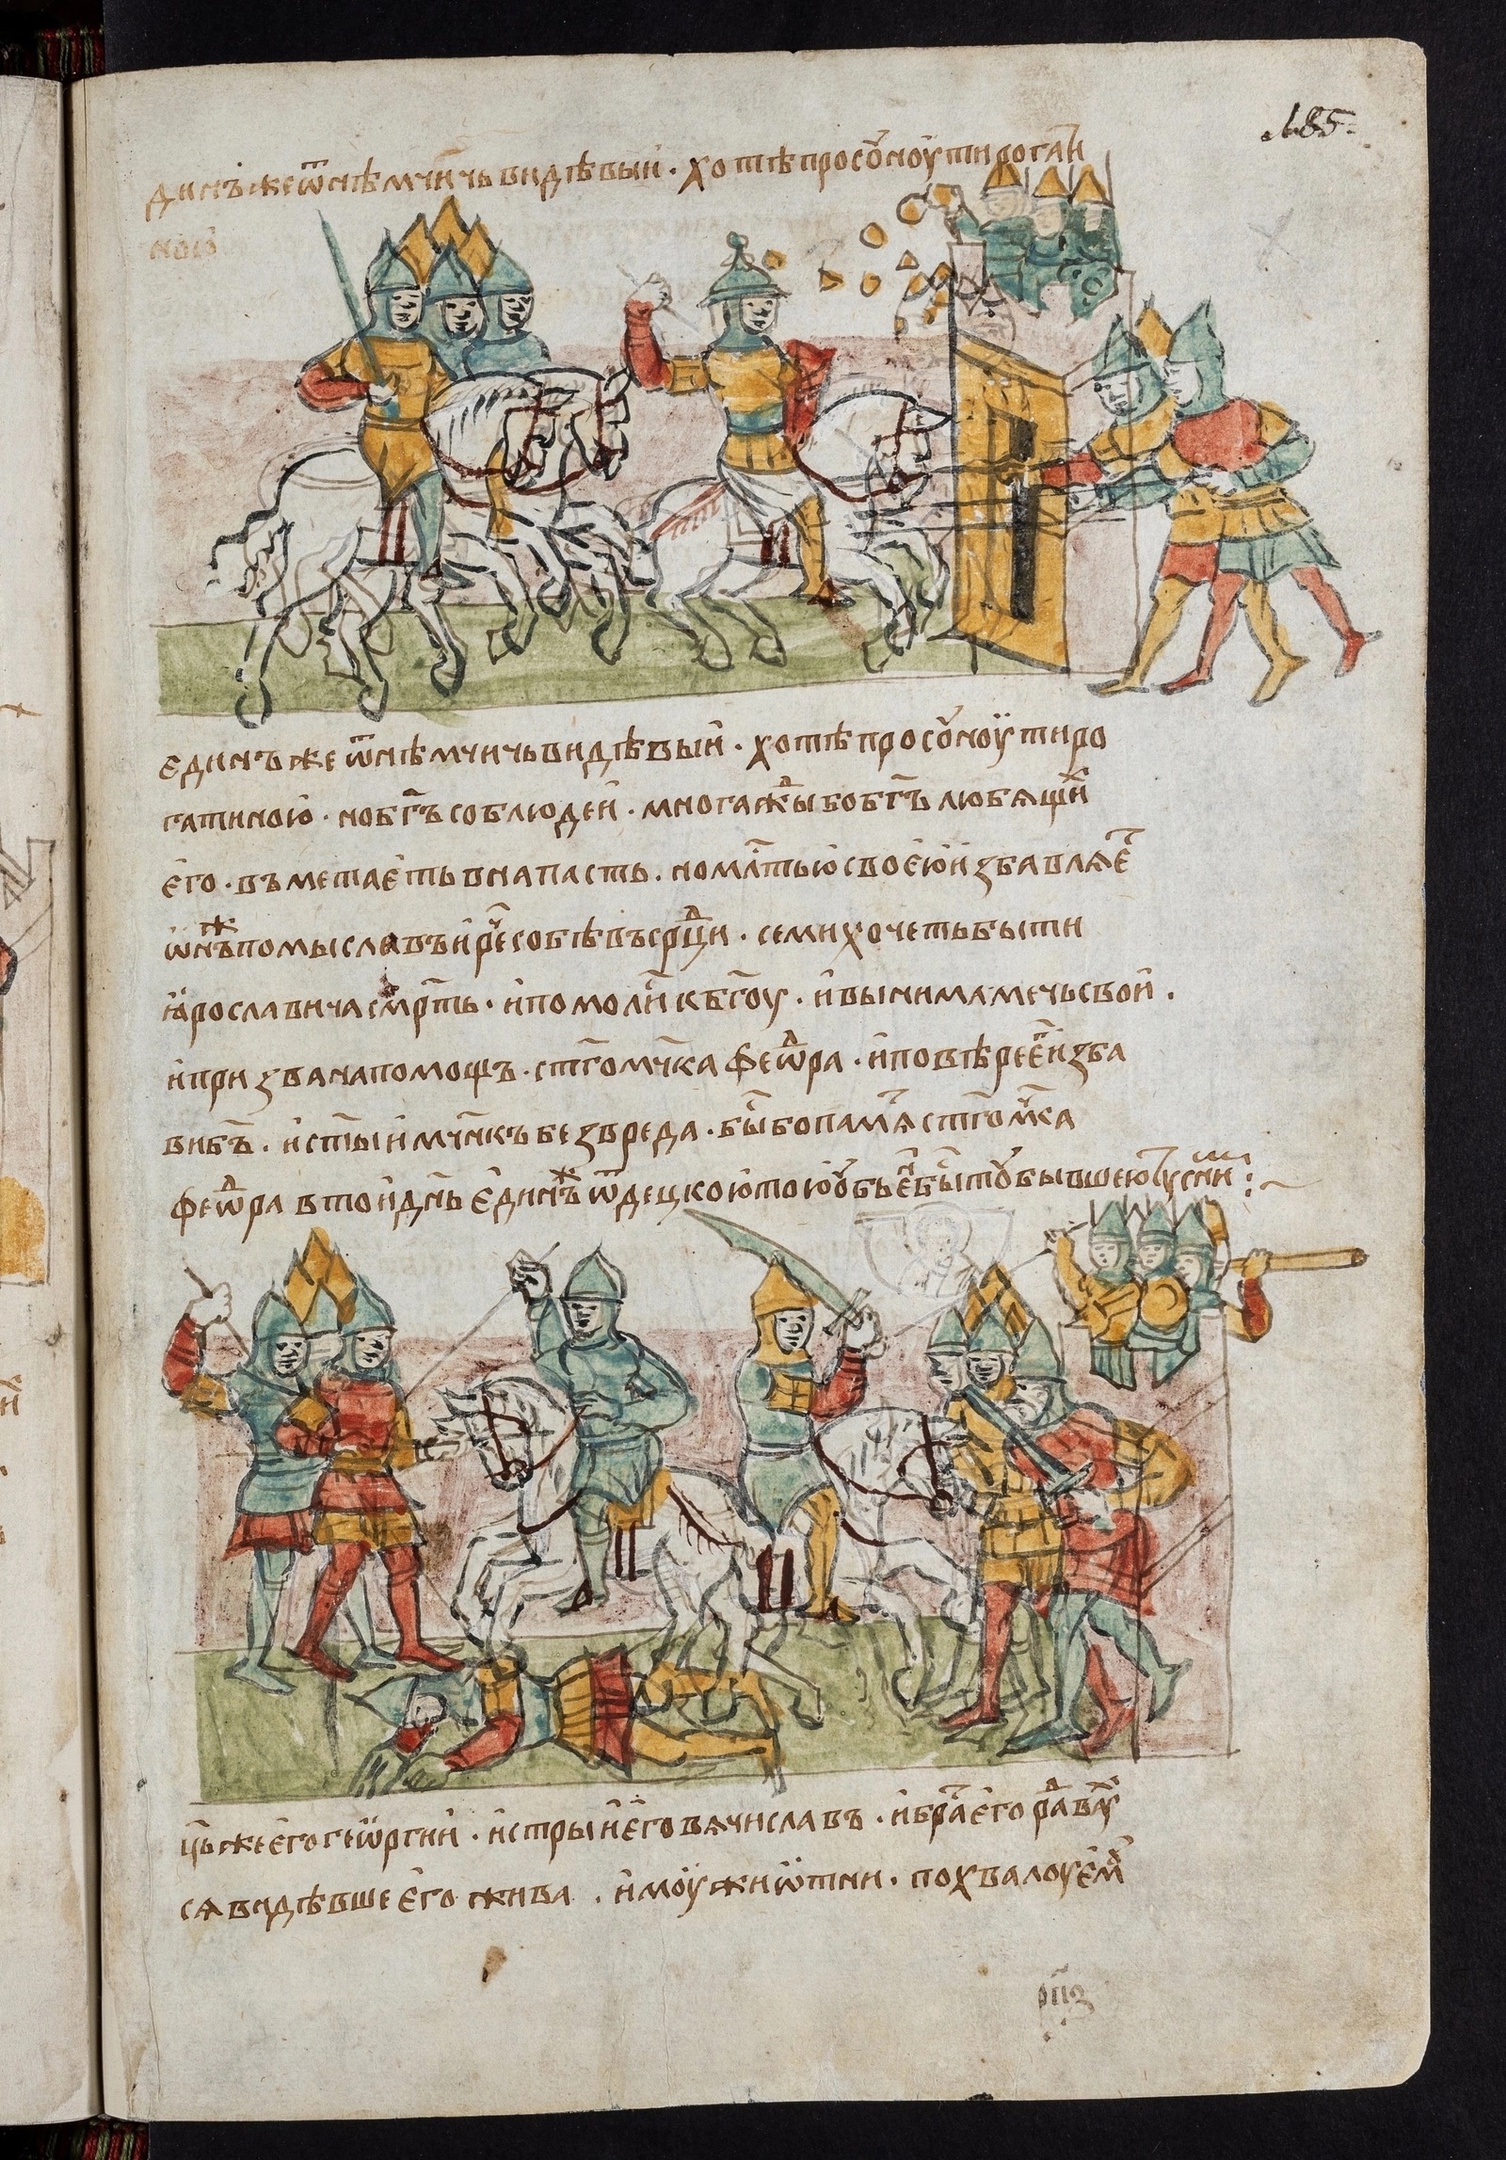 .185.
динъжеѿнѣмчичьвидѣвыи · хотѣпросоу̑ноутирогати
ною
единъжеѿнѣмчичьвидѣвыи · хотѣпросоу̑ноутиро
гатиною · нобг҃ъсоблюдеи · многажⷣыбобг҃ълюбящиⷯ
его · въметаетьвнапасть · номлⷭ҇тьюсвоеюизбавляеⷮ
ѡнъⷤпомыславъирⷱ҇есобѣвъсрⷣци · семихочетьбыти
ꙗрославичасмр҃ть · ипомолиⷭ҇кбг҃оу · ивынимамечьсвои ·
ипризванапомощъ · ст҃гомчⷭ҇каѳеѡⷣра · иповѣреегⷪ҇изба
вибъⷭ҇ · ист҃ыимчн҃къбезвреда · бⷭ҇ыбопамⷮяст҃гомⷱ҇ка
ѳеѡⷣравтоидн҃ь единъⷤѿдецкоютоюоу̑бьенъбⷭ҇ытоу̑бывшеюⷮусниⷲ :~
ѡц҃ьжеегогеѡргии · истрыиеговячиславъ · ибраⷮ҇егораⷣвахоу
сявидѣвшеегожива · имоужиѡтни · похвалоуемоу
рп҃з